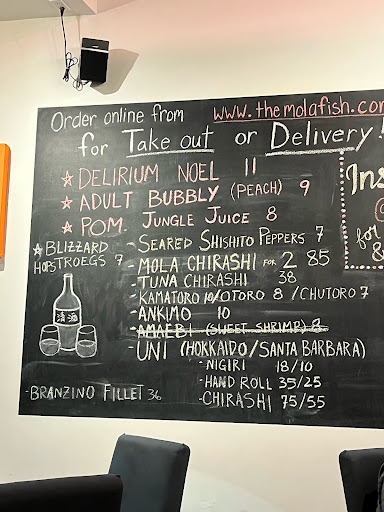 Order online from www.themolafish.com
for Take out or Delivery!
☆ DELIRIUM NOEL 11
☆ ADULT BUBBLY (PEACH) 9
☆ POM. JUNGLE JUICE 8
☆ BLIZZARD
HOPS TROEGS 7
- SEARED SHISHITO PEPPERS 7
- MOLA CHIRASHI FOR 2 85
- TUNA CHIRASHI 38
- KAMATORO 10/OTORO 8/CHUTORO 7
- ANKIMO 10
- AMAEBI (SWEET SHRIMP) 8
UNI (HOKKAIDO/SANTA BARBARA)
- NIGIRI 18/10
- HAND ROLL 35/25
- CHIRASHI 75/55
- BRANZINO FILLET 36
Ins
for